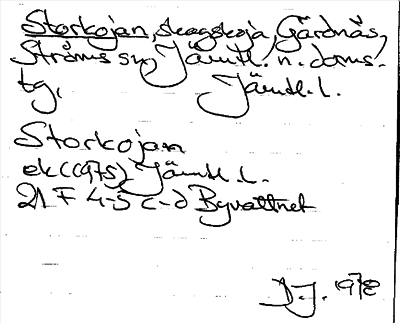 Storkojan, skogskoja, Gärdnäs,
Ströms sn, Jämtl. n. doms.
tg, Jämtl. l.
Storkojan
ek (1975) Jämtl. l.
21 F 4-5 c-d Byvattnet
D.J. 1978